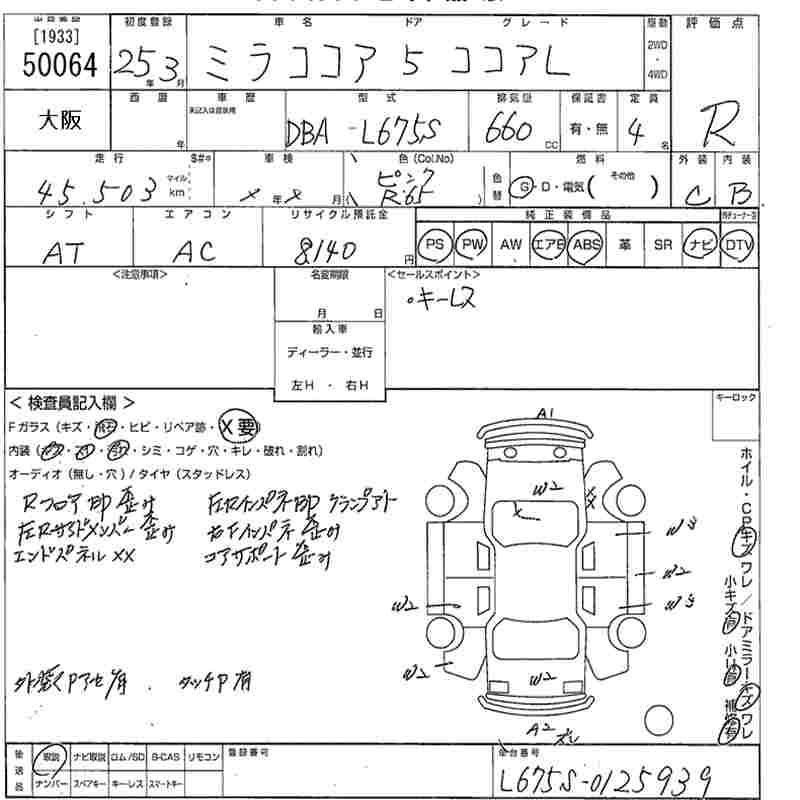 [1933]
50064
初度登録
25年3月
車名 ドア グレード
ミラココア 5 ココアL
駆動
2WD
・
4WD
評価点
R
大阪
西暦
年
車歴
未記入は自家用
型式
DBA-L675S
排気量
660 CC
保証書
有・無
定員
4名
走行 $#※
45,503 マイル km
車検
× 年 × 月
色(Col.No)
ピンク
R65
色替
燃料
G・D・電気( その他 )
外装 内装
C B
シフト
AT
エアコン
AC
リサイクル預託金
8140 円
純正装備品
PS PW AW エアB ABS 革 SR ナビ DTV
<注意事項>
名変期限
月 日
輸入車
ディーラー・並行
左H・右H
<セールスポイント>
・キーレス
キーロック
<検査員記入欄>
Fガラス(キズ・ ・ヒビ・リペア跡・X要)
内装( ・ ・ ・シミ・コゲ・穴・キレ・破れ・割れ)
オーディオ(無し・穴)/タイヤ(スタッドレス)
Rフロア 歪み 左Rインパネ クランプアト
左Rサイドメンバー歪み 右Fインパネ 歪み
エンドパネルXX コアサポート歪み
タッチP有
A1
W2
X
X
X
W3
W2
W3
W2
W2
W2
A2 ズレ
ホイル・CPキズ ワレ/ドアミラーキズ ワレ
小キズ有 小凹有 補修有
後送品
取説 ナビ取説 ロム/SD B-CAS リモコン
ナンバー スペアキー キーレス スマートキー
登録番号
車台番号
L675S-0125939